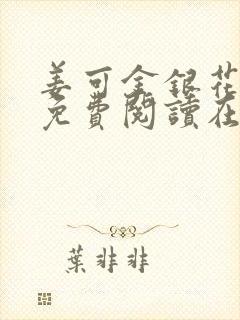 姜可金銀花
免費閱讀在
葉非非